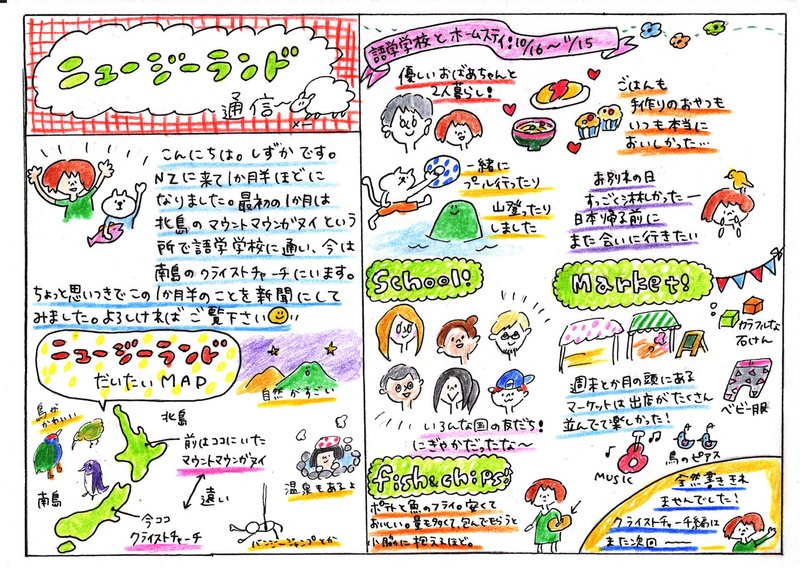 ニュージーランド
通信
こんにちは。しずかです。
NZに来て1か月半ほどに
なりました。最初の1か月は
北島のマウントマウンガヌイという
所で語学学校に通い、今は
南島のクライストチャーチにいます。
ちょっと思いつきでこの1か月半のことを新聞にして
みました。よろしければご覧下さい
ニュージーランド
だいたいMAP
自然がすごい
鳥が
かわいい
北島
前はココにいた
マウントマウンガヌイ
遠い
南島
今ココ
クライストチャーチ
温泉もあるよ
バンジージャンプとか
語学学校とホームステイ!10/16〜11/15
優しいおばあちゃんと
2人暮らし!
ごはんも
手作りのおやつも
いつも本当に
おいしかった…
一緒に
プール行ったり
山登ったり
しました
お別れの日
すっごく淋しかったー
日本帰る前に
また会いに行きたい
School!
いろんな国の友だち!
にぎやかだったな〜
Market!
カラフルな
石けん
ベビー服
週末とか月の頭にある
マーケットは出店がたくさん
並んでて楽しかった!
MUSIC
鳥のピアス
fish&chips!
ポテトと魚のフライ。安くて
おいしい。量も多くて、包んでもらうと
小脇に抱えるほど。
全然書ききれ
ませんでした!
クライストチャーチ編は
また次回